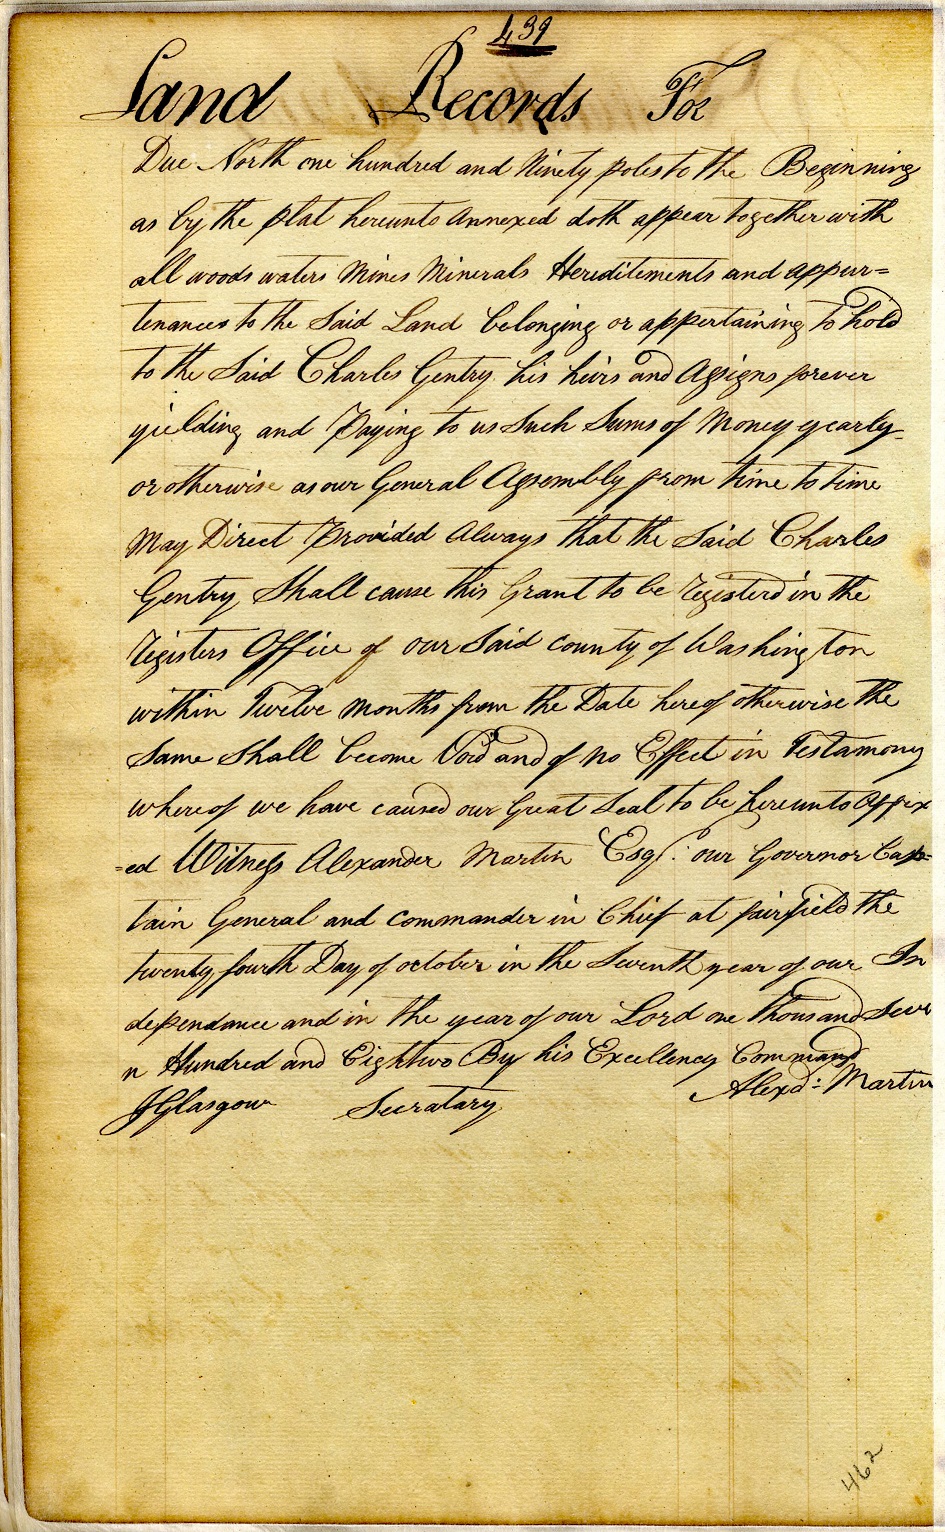 439
Land Records For
Due North one hundred and Ninety poles to the Beginning
as by the plat hereunto annexed doth appear together with
all woods waters Mines Minerals Hereditements and appur=
tenances to the Said Land belonging or appertaining to hold
to the Said Charles Gentry his heirs and Assigns forever
yielding and Paying to us Such Sums of Money yearly
or otherwise as our General Assembly from time to time
May Direct Provided Always that the Said Charles
Gentry Shall cause this Grant to be registerd in the
registers Office of our Said county of Washington
within Twelve Months from the Date hereof otherwise the
Same Shall become Void and of no Effect in Testamony
whereof we have caused our Great Seal to be hereunto affix
=ed Witness Alexander Martin Esqr. our Governor Cap=
tain General and commander in Chief at fairfield the
twenty fourth Day of october in the Seventh year of our In
dependance and in the year of our Lord one thousand Seve
n Hundred and Eightwo By his Excellency Command
Alexd: Martin
JGlasgow Secratary
462